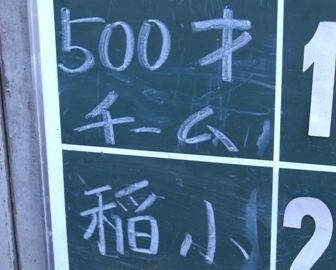 500才
チーム
1
稲小
2